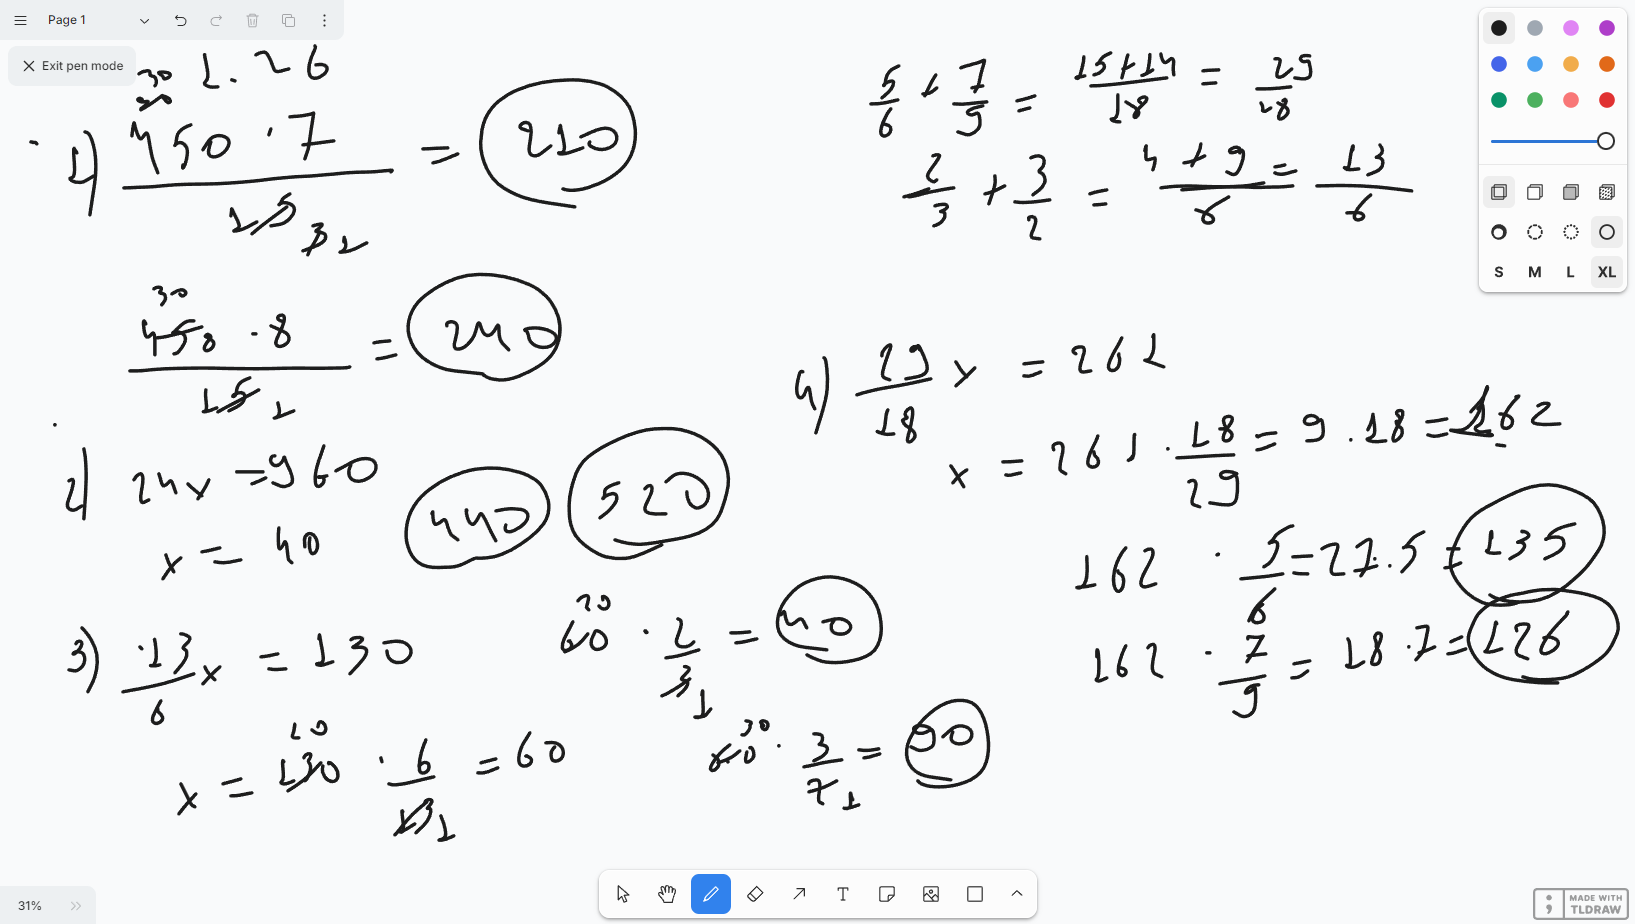 Page 1
Exit pen mode
1.26
30
1) 450 · 7 / 15 3 1 = 210
30
450 · 8 / 15 1 = 240
2) 24x = 960
x = 40
440 520
3) 13/6 x = 130
10
x = 130 · 6/13 1 = 60
20
60 · 2/3 1 = 40
30
60 · 3/2 1 = 90
5/6 + 7/9 = 15+14/18 = 29/18
2/3 + 3/2 = 4+9/6 = 13/6
4) 29/18 x = 261
x = 261 · 18/29 = 9 · 18 = 162
162 · 5/6 = 27 · 5 = 135
162 · 7/9 = 18 · 7 = 126
S M L XL
31%
MADE WITH
TLDRAW